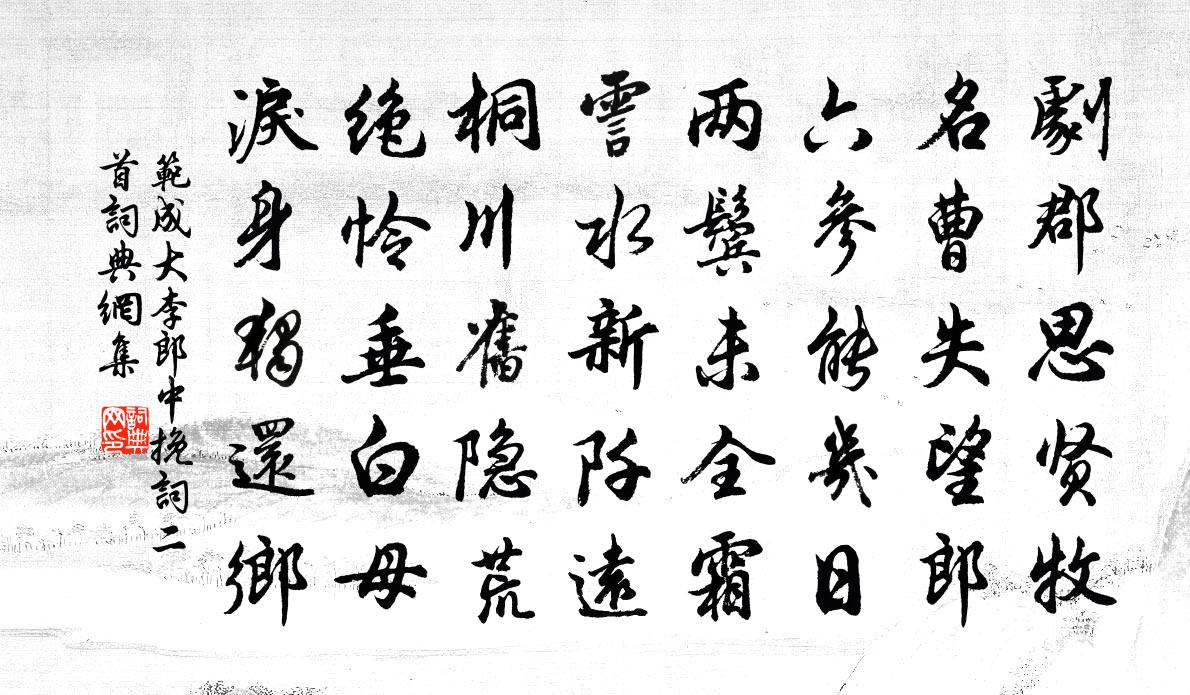 劇郡思贤牧
名曹失望郎
六參能幾日
两鬓未全霜
霅水新阡遠
桐川舊隐荒
绝怜垂白母
淚身獨還鄉
範成大李郎中挽詞二
首詞典網集
詞典网印